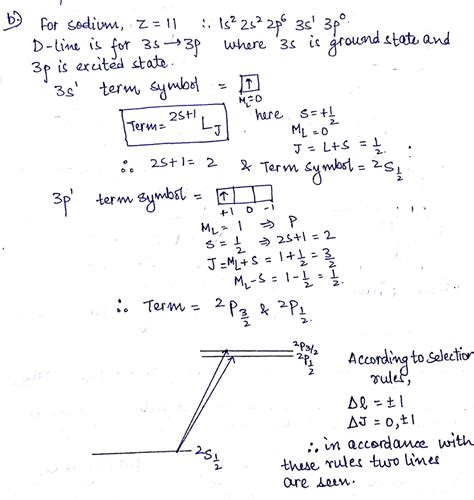 b) For sodium, Z = 11 ∴ 1s² 2s² 2p⁶ 3s¹ 3p⁰
D-line is for 3s → 3p where 3s is ground state and
3p is excited state.
3s¹ term symbol = ↑
M_L=0
Term = ²ˢ⁺¹L_J
here S = +1/2
M_L = 0
J = L+S = 1/2
∴ 2S+1 = 2 & Term Symbol = ²S_1/2
3p¹ term symbol = ↑
+1 0 -1
M_L = 1 ⇒ P
S = 1/2 ⇒ 2S+1 = 2
J = M_L+S = 1+1/2 = 3/2
M_L-S = 1-1/2 = 1/2.
∴ Term = ²P_3/2 & ²P_1/2
²P_3/2
²P_1/2
²S_1/2
According to selection
rules,
Δl = ±1
ΔJ = 0, ±1
∴ in accordance with
these rules two lines
are seen.